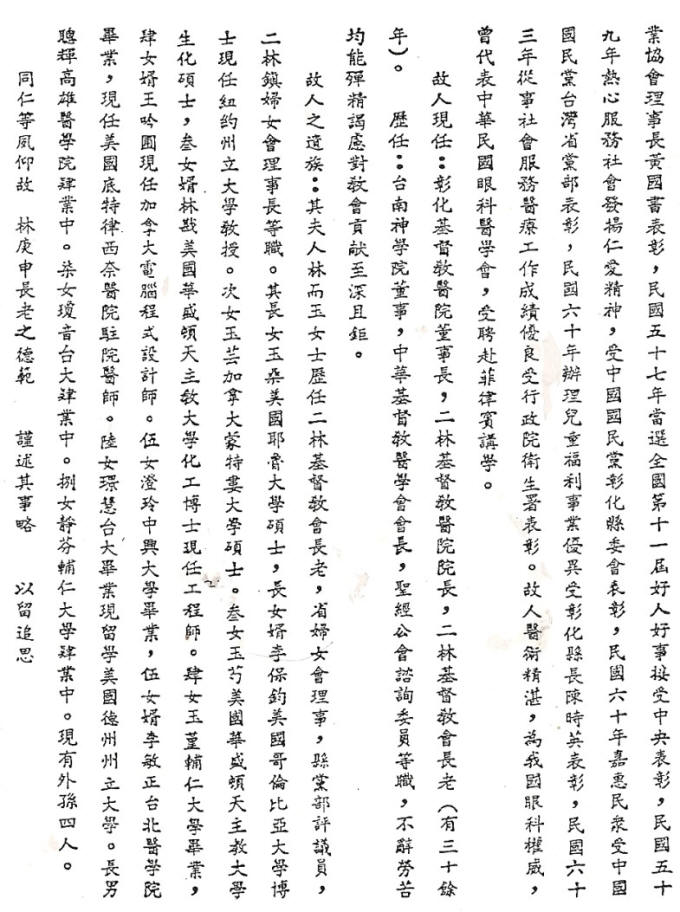 業協會理事長黃國書表彰，民國五十七年當選全國第十一屆好人好事接受中央表彰，民國五十
九年熱心服務社會發揚仁愛精神，受中國國民黨彰化縣委會表彰，民國六十年嘉惠民衆受中國
國民黨台灣省黨部表彰，民國六十年辦理兒童福利事業優異受彰化縣長陳時英表彰，民國六十
三年從事社會服務醫療工作成績優良受行政院衛生署表彰。故人醫術精湛，為我國眼科權威，
曾代表中華民國眼科醫學會，受聘赴菲律賓講學。
故人現任：彰化基督教醫院董事長，二林基督教醫院院長，二林基督教會長老（有三十餘
年）。　歷任：台南神學院董事，中華基督教醫學會會長，聖經公會諮詢委員等職，不辭勞苦
均能殫精謁慮對教會貢献至深且鉅。
故人之遺族：其夫人林而玉女士歷任二林基督教會長老，省婦女會理事，縣黨部評議員，
二林鎮婦女會理事長等職。其長女玉桑美國耶魯大學碩士，長女婿李保鈞美國哥倫比亞大學博
士現任紐約州立大學教授。次女玉芸加拿大蒙特婁大學碩士。叁女玉芍美國華盛頓天主教大學
生化碩士，叁女婿林戡美國華盛頓天主教大學化工博士現任工程師。肆女玉堇輔仁大學畢業，
肆女婿王吟圃現任加拿大電腦程式設計師。伍女澄玲中興大學畢業，伍女婿李敏正台北醫學院
畢業，現任美國底特律西奈醫院駐院醫師。陸女環慧台大畢業現留學美國德州州立大學。長男
聰輝高雄醫學院肄業中。柒女瓊音台大肄業中。捌女靜芬輔仁大學肄業中。現有外孫四人。
同仁等夙仰故　林庚申長老之德範　　謹述其事略　　以留追思